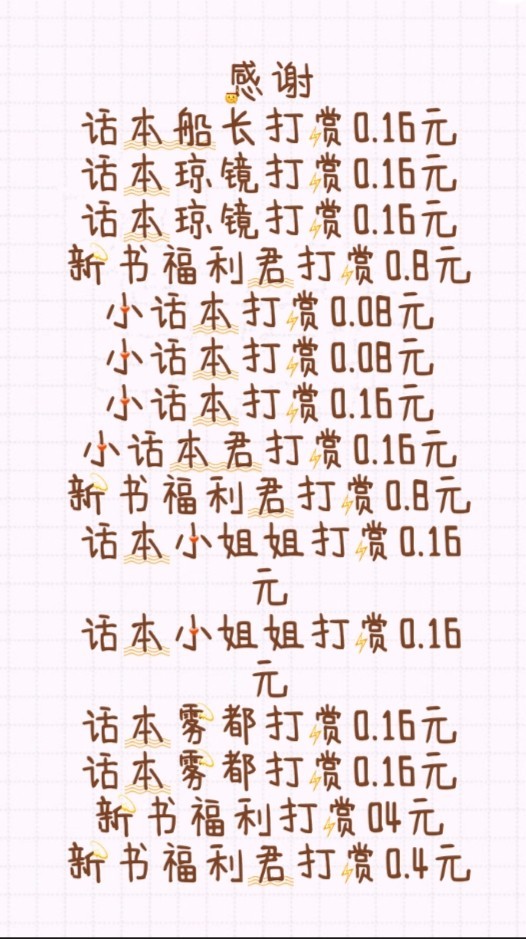 感谢
话本船长打赏0.16元
话本琼镜打赏0.16元
话本琼镜打赏0.16元
新书福利君打赏0.8元
小话本打赏0.08元
小话本打赏0.08元
小话本打赏0.16元
小话本君打赏0.16元
新书福利君打赏0.8元
话本小姐姐打赏0.16
元
话本小姐姐打赏0.16
元
话本雾都打赏0.16元
话本雾都打赏0.16元
新书福利打赏04元
新书福利君打赏0.4元